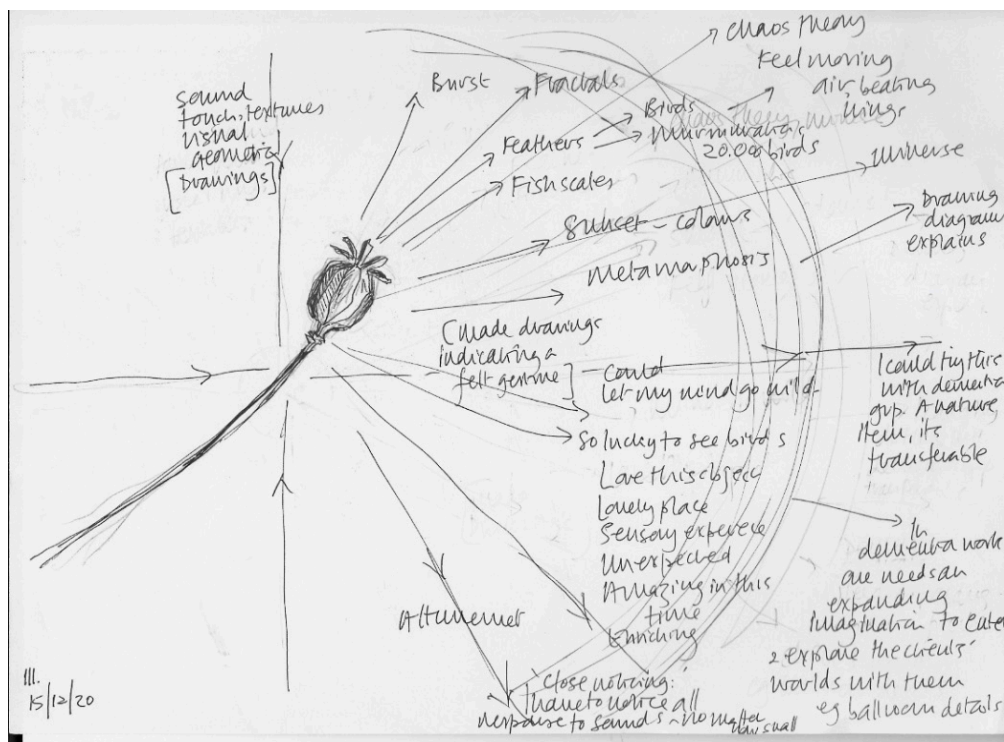 sound
touch, textures
visual
geometric
[Drawings]
Burst
Fractals
Chaos theory
Feel moving
air, beating
wings
Birds
Feathers
Murmurations
20.000 birds
Fish scales
Universe
Sunset - colours
Drawing
- diagram
explains
Metamorphosis
[made drawings
indicating a
felt gesture]
Could
let my mind go wild
I could try this
with dementia
grp. A nature
item, its
transferable
So lucky to see birds
Love this object
Lovely place
Sensory experience
Unexpected
Amazing in this
time
Enriching
In
dementia work
one needs an
expanding
imagination to enter
& explore the clients'
worlds with them
eg ballroom details
Attunement
'Close noticing:
I have to notice all
response to sounds - no matter
how small
III.
15/12/20